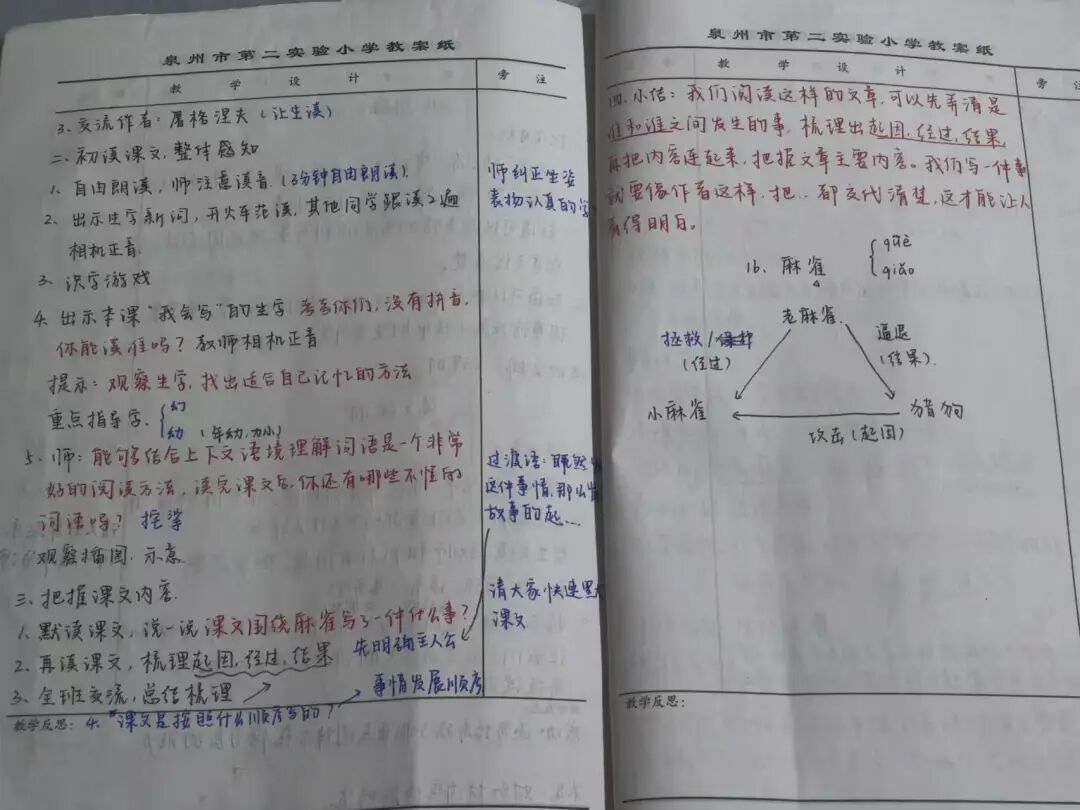 泉州市第二实验小学教案纸
教 学 设 计
旁 注
3. 交流作者：屠格涅夫（让生读）
二、初读课文，整体感知
1. 自由朗读，师注意读音.（3分钟自由朗读）.
2. 出示生字新词，开火车范读，其他同学跟读2遍
相机正音.
3. 识字游戏
4. 出示本课“我会写”的生字 考考你们，没有拼音，
你能读准吗？教师相机正音
提示：观察生字，找出适合自己记忆的方法
重点指导字. { 幻
幼 （年幼，力小）
5. 师：能够结合上下文语境理解词语是一个非常
好的阅读方法，读完课文后，你还有哪些不懂的
词语吗？ 挓挲
观察插图，示意
三、把握课文内容.
1. 默读课文，说一说课文围绕麻雀写了一件什么事？
2. 再读课文，梳理起因，经过，结果
3. 全班交流，总结梳理
教学反思： 4. “课文是按照什么顺序写的？
师纠正生姿
表扬认真的学
过渡语：既然
这件事情，那么
故事的起...
请大家快速
课文
先明确主人公
事情发展顺序
泉州市第二实验小学教案纸
教 学 设 计
旁
四、小结：我们阅读这样的文章，可以先弄清是
谁和谁之间发生的事，梳理出起因，经过，结果，
再把内容连起来，把握文章主要内容。我们写一件事
就要像作者这样，把...都交代清楚，这才能让人
看得明白。
16. 麻雀 { què
qiǎo
老麻雀
拯救/
（经过）
逼退
（结果）.
小麻雀
猎狗
攻击（起因）
教学反思：